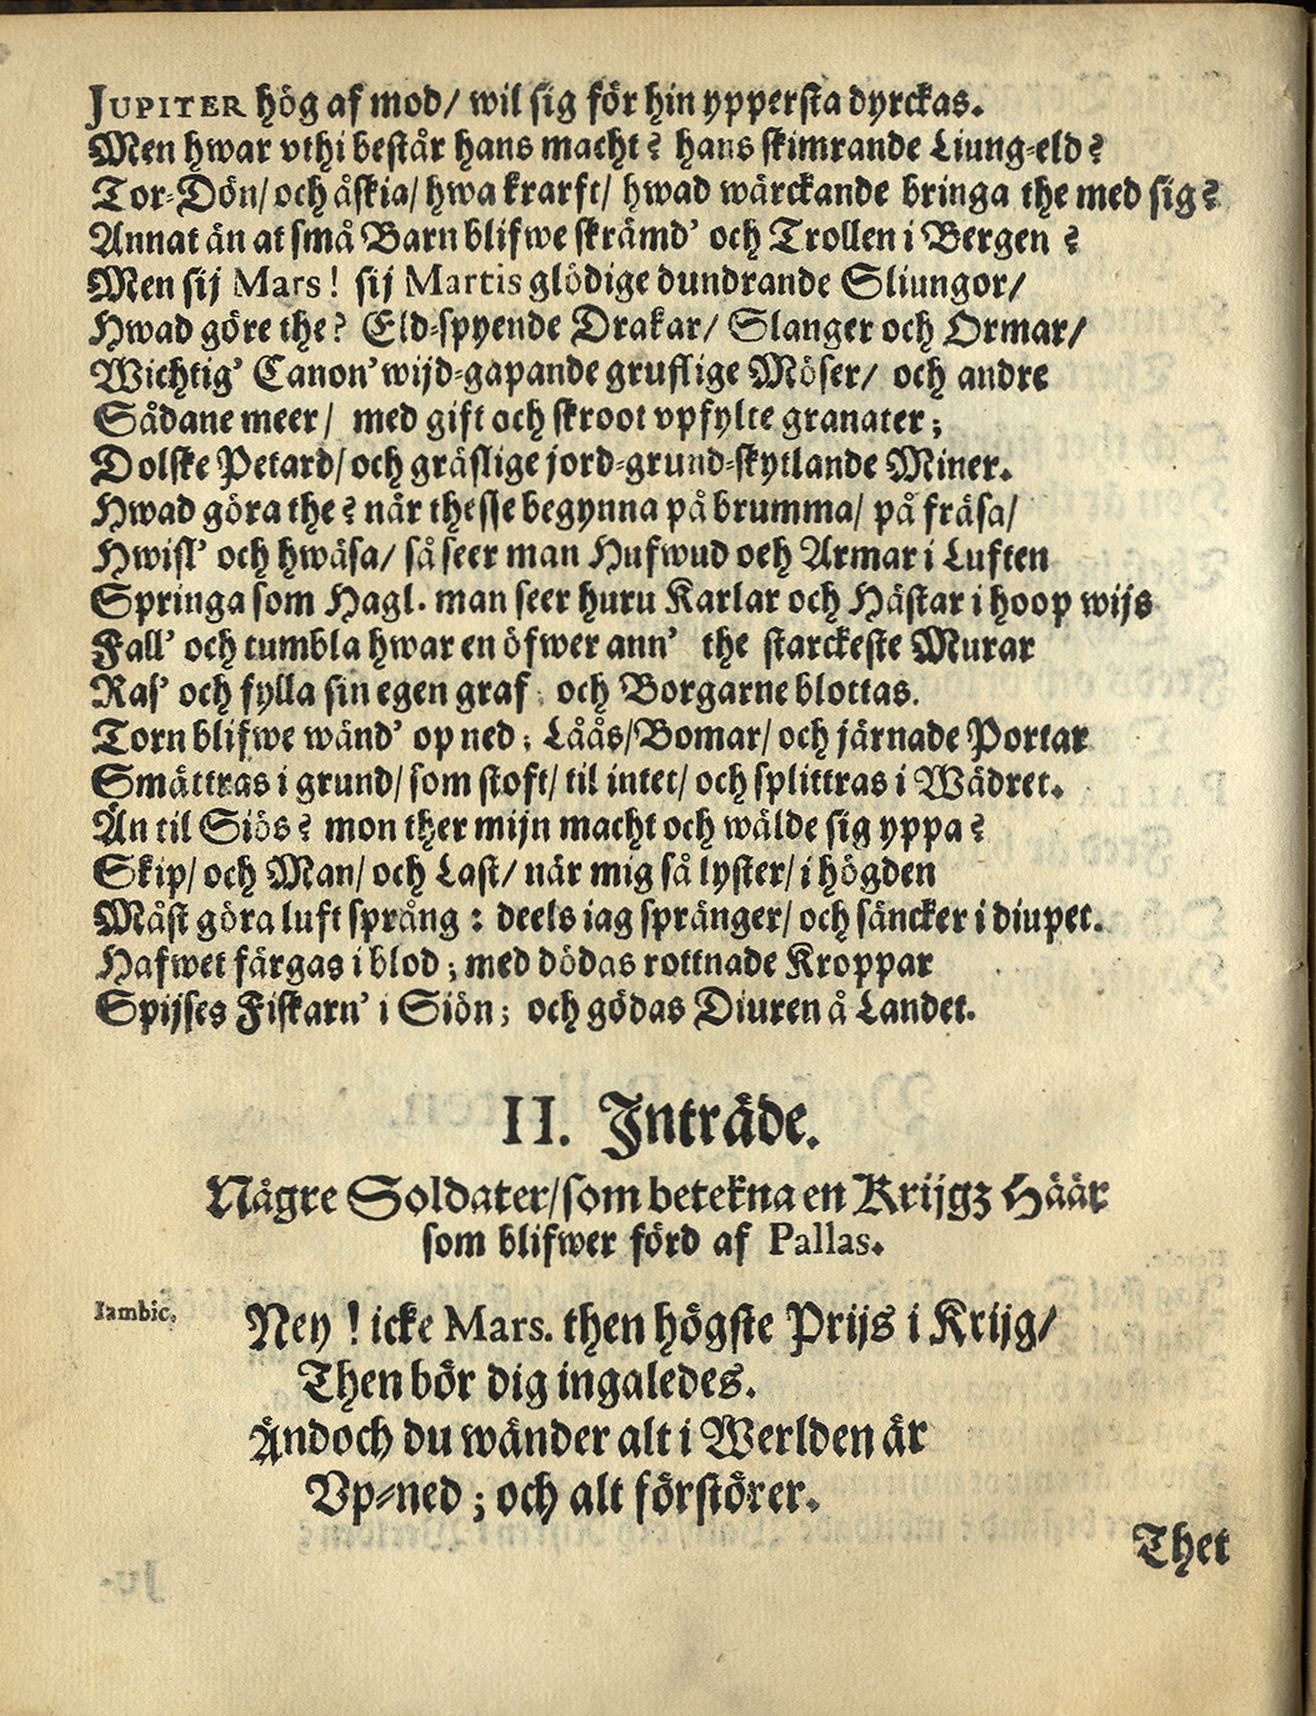 JUPITER hög af mod/ wil sig för hin yppersta dyrckas.
Men hwar vthi består hans macht? hans skimrande Liung-eld?
Tor-Dön/ och åskia/ hwa krarft/ hwad wärckande bringa the med sig?
Annat än at små Barn blifwe skrämd' och Trollen i Bergen ?
Men sij Mars! sij Martis glödige dundrande Sliungor/
Hwad göre the? Eld-spyende Drakar/ Slanger och Ormar/
Wichtig' Canon' wijd-gapande gruflige Möser/ och andre
Sådane meer/ med gift och skroot vpfylte granater;
Dolske Petard/ och gräslige jord-grund-skytlande Miner.
Hwad göra the? när thesse begynna på brumma/ på fräsa/
Hwisl' och hwäsa/ så seer man Hufwud oeh Armar i Luften
Springa som Hagl. man seer huru Karlar och Hästar i hoop wijs
Fall' och tumbla hwar en öfwer ann' the starckeste Murar
Ras' och fylla sin egen graf; och Borgarne blottas.
Torn blifwe wänd' op ned; Låås/ Bomar/ och järnade Portar
Smättras i grund/ som stoft/ til intet/ och splittras i Wädret.
Än til Siös? mon ther mijn macht och wälde sig yppa?
Skip/ och Man/ och Last/ när mig så lyster/ i högden
Måst göra luft språng: deels iag spränger/ och säncker i diupet.
Hafwet färgas i blod; med dödas rottnade Kroppar
Spijses Fiskarn' i Siön; och gödas Diuren å Landet.
II. Inträde.
Någre Soldater/ som betekna en Krijgz Häär
som blifwer förd af Pallas.
Iambic.
Ney! icke Mars. then högste Prijs i Krijg/
Then bör dig ingaledes.
Ändoch du wänder alt i Werlden är
Vp-ned; och alt förstörer.
Thet